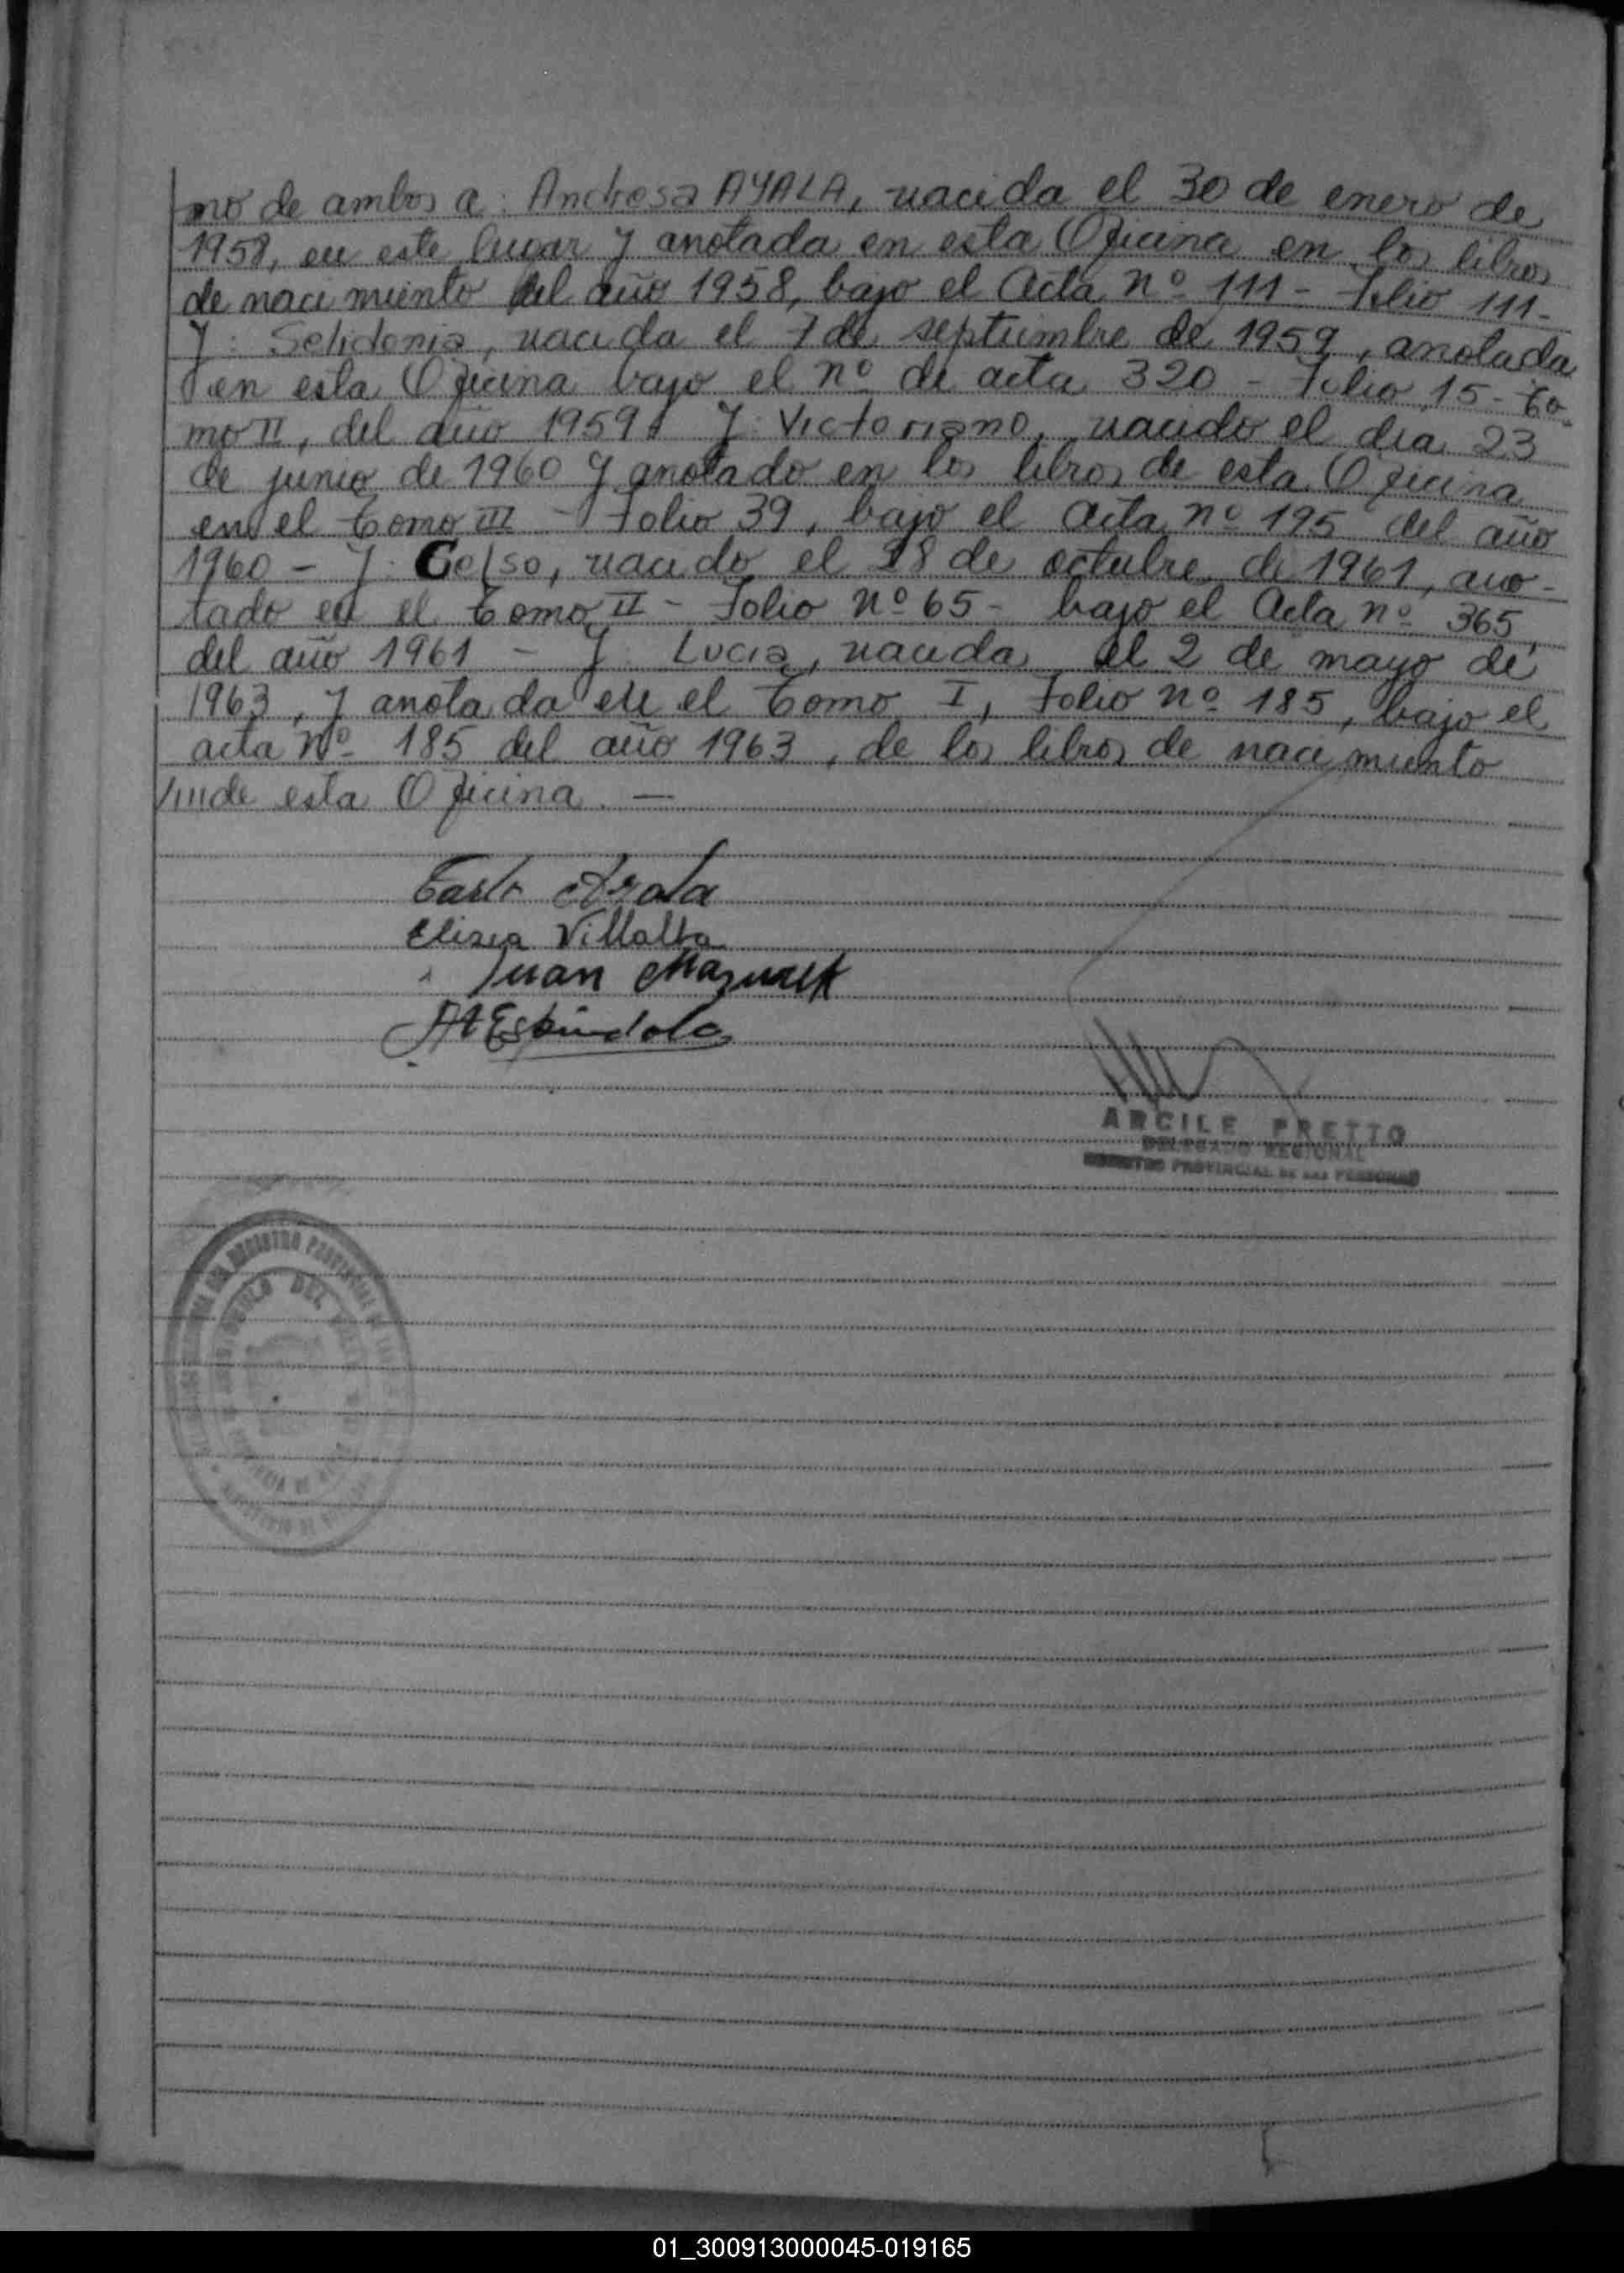 mo de ambos a: Andresa AYALA, nacida el 30 de enero de
1958, en este lugar y anotada en esta Oficina en los libros
de nacimiento del año 1958, bajo el Acta nº 111 - Folio 111-
y: Selidonia, nacida el 7 de septiembre de 1959, anotada
en esta Oficina bajo el nº de acta 320 - Folio 15 - To-
mo II, del año 1959. y: Victoriano, nacido el dia 23
de junio de 1960 y anotado en los libros de esta Oficina
en el Tomo III - Folio 39, bajo el Acta nº 195 del año
1960 - y: Celso, nacido el 28 de octubre de 1961, ano-
tado en el Tomo II - Folio nº 65 - bajo el Acta nº 365
del año 1961 - y: Lucia, nacida el 2 de mayo de
1963, y anotada en el Tomo I, Folio nº 185, bajo el
acta Nº 185 del año 1963, de los libros de nacimiento
de esta Oficina. —
Ayala
Elisea Villalba
Juan Mazurek
Espindola
ARCILE PRETTO
DELEGADO REGIONAL
REGISTRO PROVINCIAL DE LAS PERSONAS
REGISTRO PROVINCIAL DE LAS
DEL
01_300913000045-019165